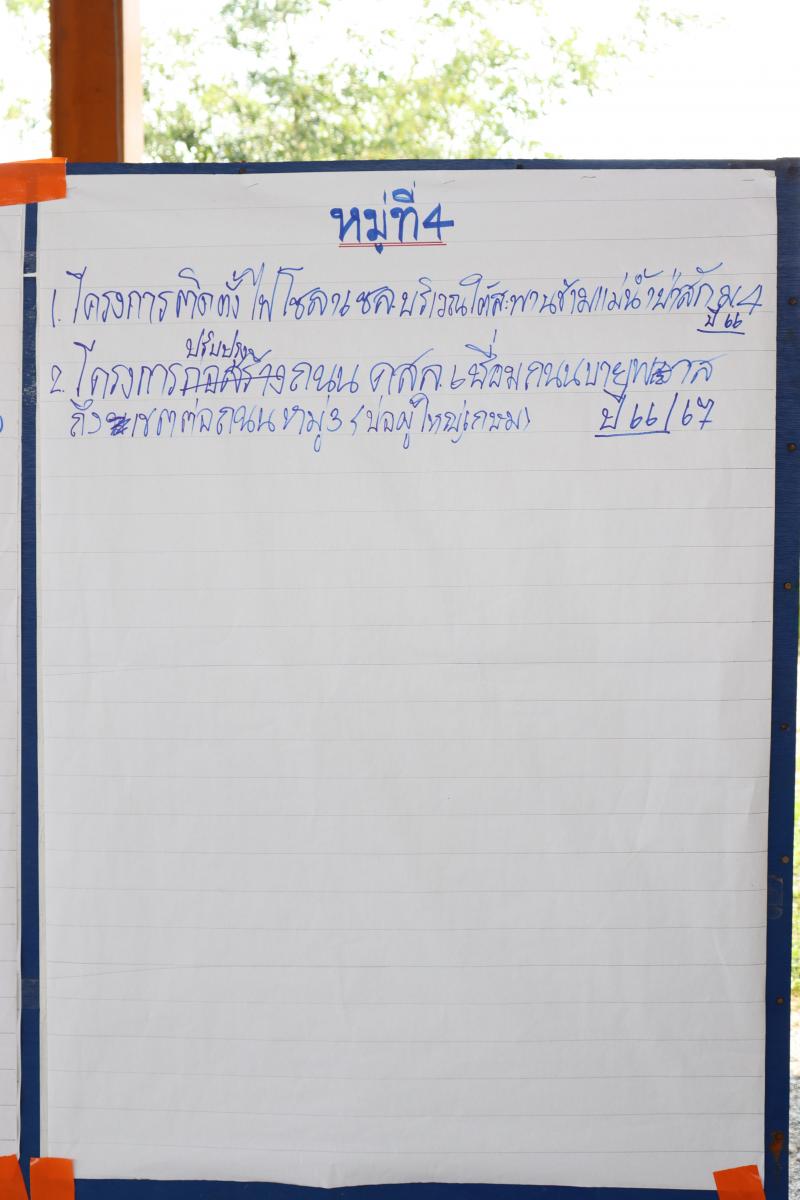 หมู่ที่4
1. โครงการติดตั้งไฟโซลาเซลบริเวณใต้สะพานข้ามแม่น้ำป่าสัก ม4
ปี 66
ปรับปรุง
2. โครงการก่อสร้างถนน คสล. เชื่อมถนน
ถึง เขตต่อถนน หมู่3 (บ่อผู้ใหญ่เกษม) ปี 66/67